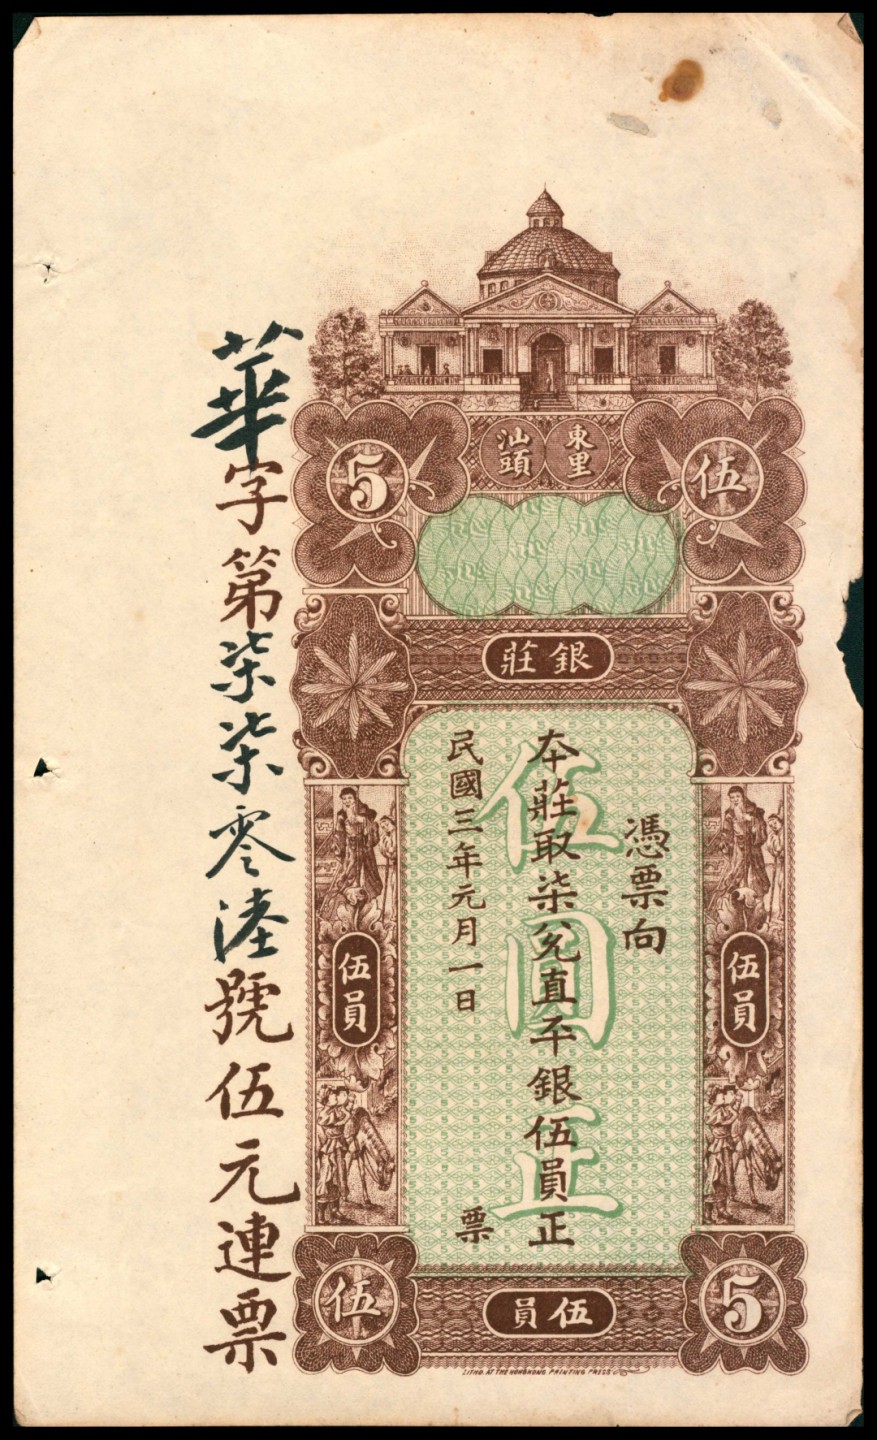 東里
汕頭
5
伍
銀莊
憑票向
本莊取柒兌直平銀伍員正
民國三年元月一日
票
伍圓正
伍員
伍員
伍
伍員
5
LITHO. AT THE HONGKONG PRINTING PRESS
華字第柒柒零陸號伍元連票